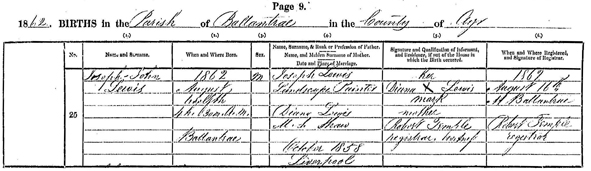 Page 9.
1862. BIRTHS in the Parish of Ballantrae in the County of Ayr
(1.) (2.) (3.) (4.) (5.) (6.)
No. Name and Surname. When and Where Born. Sex. Name, Surname, & Rank or Profession of Father. Name, and Maiden Surname of Mother. Date and Place of Marriage. Signature and Qualification of Informant, and Residence, if out of the House in which the Birth occurred. When and Where Registered, and Signature of Registrar.
Joseph John 1862 M Joseph Lewis her 1862
Lewis August Landscape Painter Diana X Lewis August 16th
twelfth mark At Ballantrae
25 4h. 0m. A.M. Diana Lewis mother
M.S. Shaw Robert registrar, witness Robert
Ballantrae registrar
October 1858
Liverpool